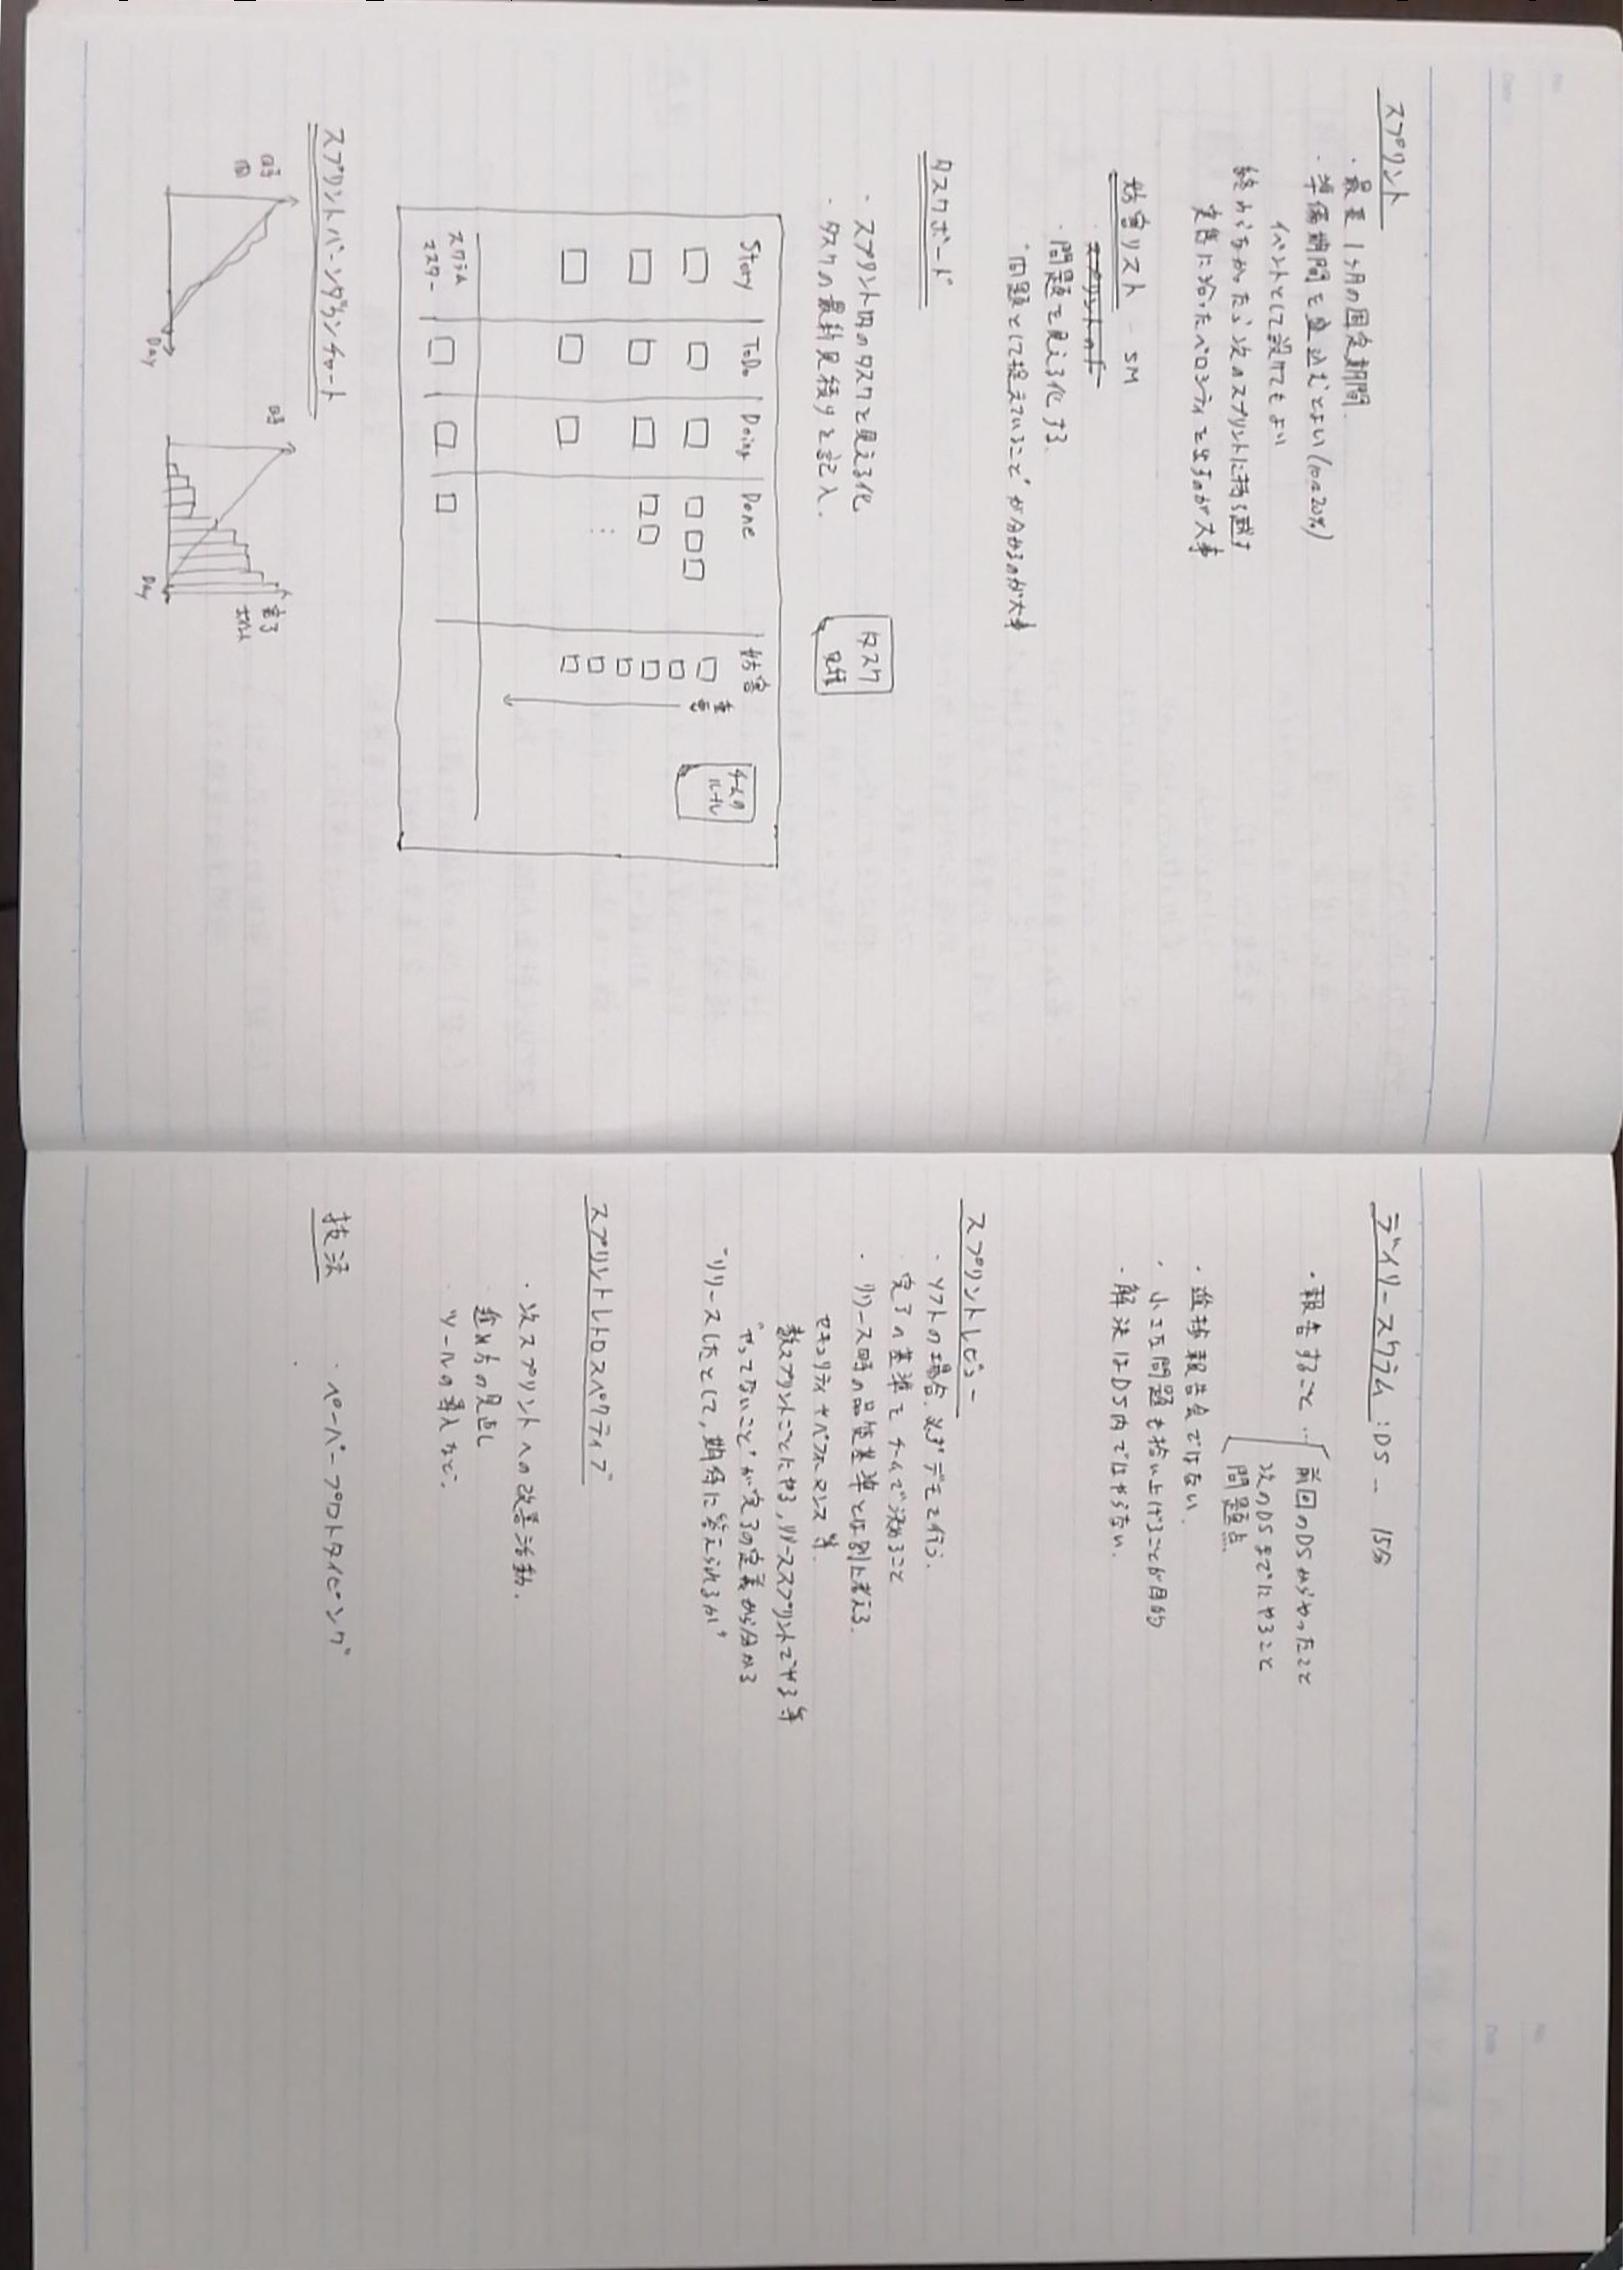 スプリント
・最長1ヶ月の固定期間.
・準備期間を見込むとよい (10〜20%)
イベントとして設けてもよい
終わらなかったら次のスプリントに持ち越す
定義に沿ったベロシティを出すのが大事
妨害リスト - SM
・問題を見える化する.
・"問題として捉えていること"が分かるのが大事
タスクボード
・スプリント内のタスクを見える化
・タスクの最新見積りを記入.
タスク
見積
Story ToDo Doing Done 妨害
重要
チームのルール
スクラムマスター
スプリントバーンダウンチャート
時間
Day
時
完了
Day
デイリースクラム : DS - 15分
・報告すること … 前回のDSからやったこと
次のDSまでにやること
問題点
・進捗報告会ではない.
・小さな問題も拾い上げることが目的
・解決はDS内ではやらない.
スプリントレビュー
・ソフトの場合, 必ずデモを行う.
完了の基準をチームで決めること
・リリース時の品質基準とは別に考える.
セキュリティやパフォーマンス 等.
数スプリントごとにやる, リリーススプリントでやる等
"やってないこと"が完了の定義から分かる
"リリースしたとして, 期待に答えられるか"
スプリントレトロスペクティブ
・次スプリントへの改善活動.
・進め方の見直し
・ツールの導入など.
技法 ・ペーパープロトタイピング